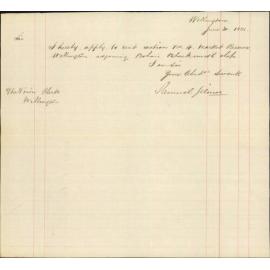 Wellington
June 1881
Sir
I hereby apply to rent section No 4 Market Reserve
Wellington adjoining Blacksmith shop
I am Sir
Your Obdt Servant
Samuel
The Town Clerk
Wellington